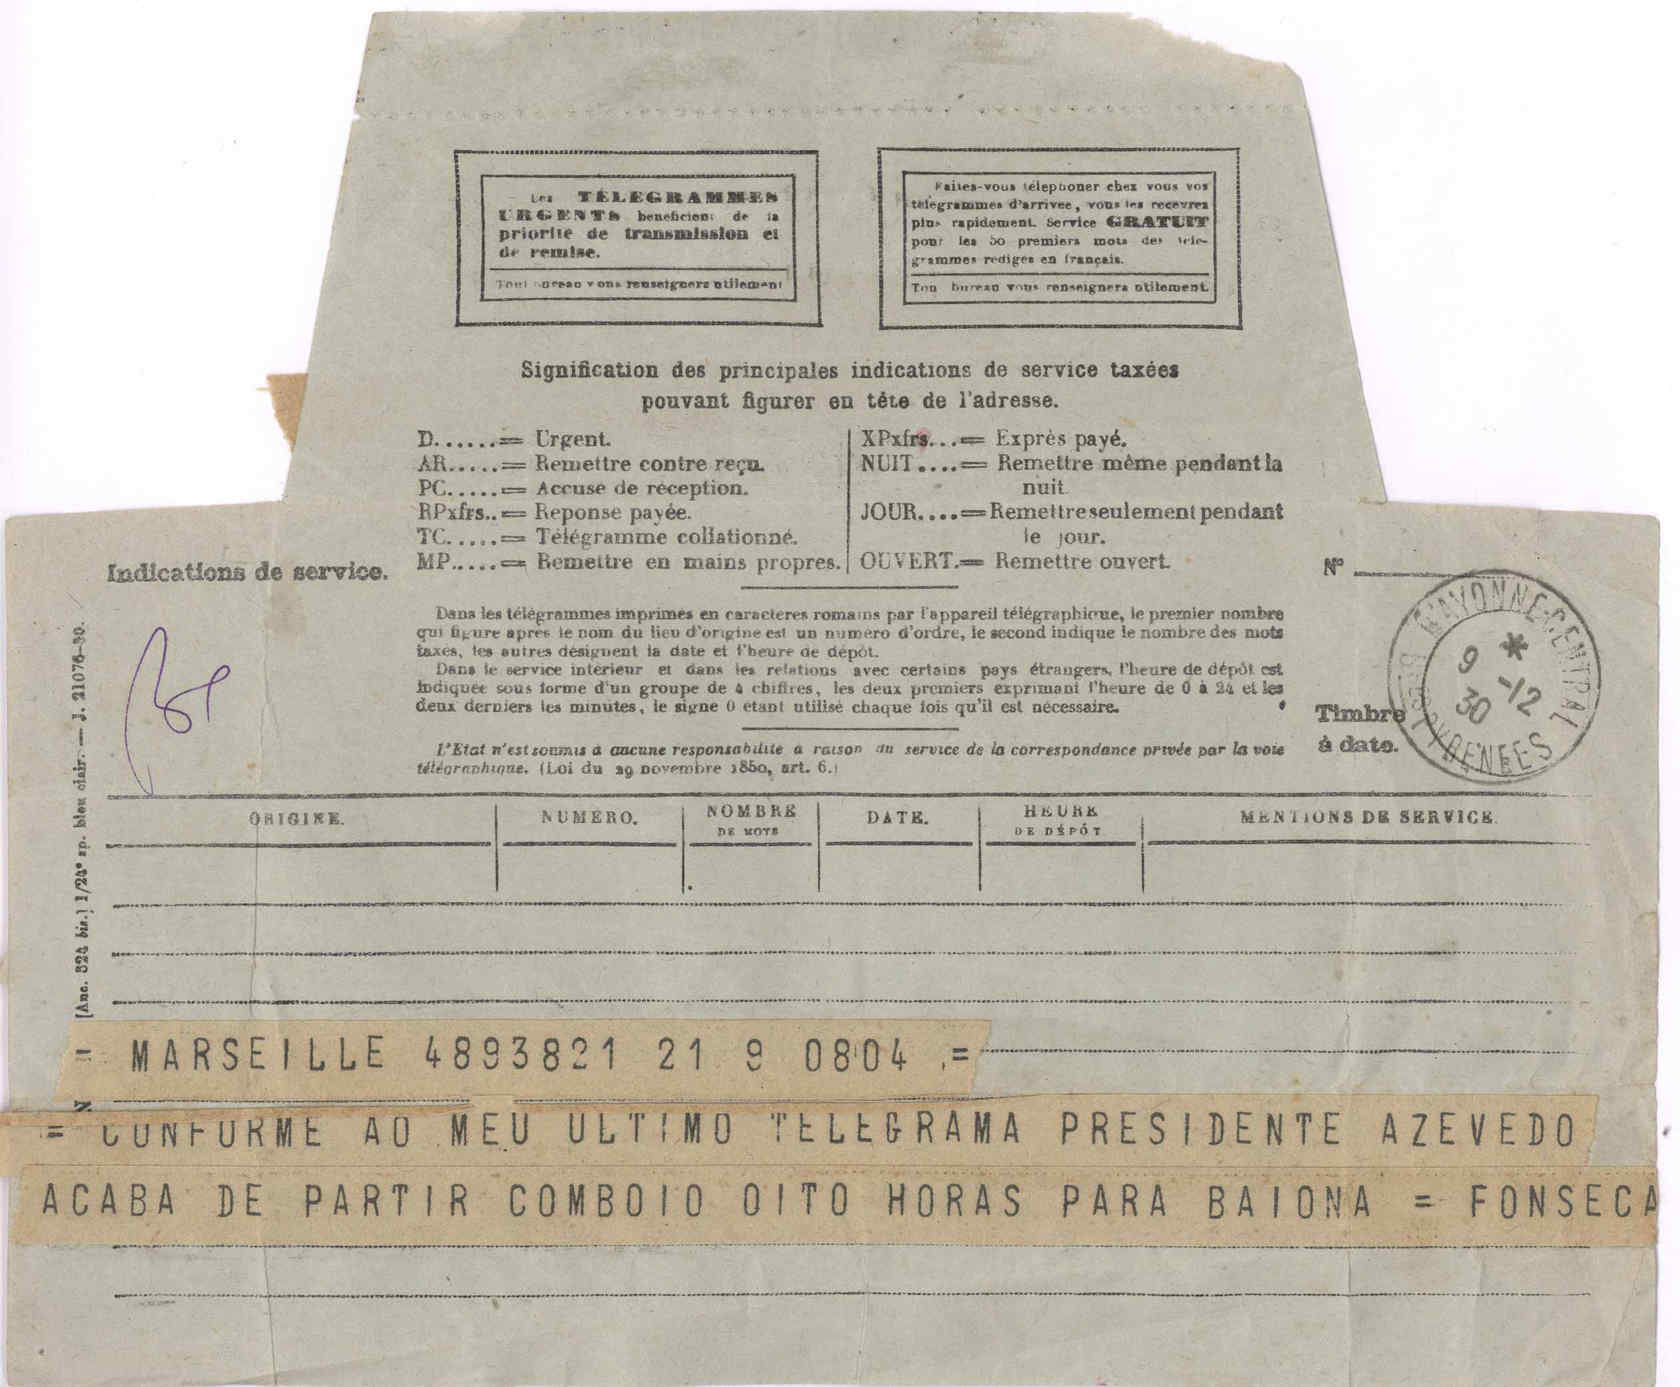 Les TÉLÉGRAMMES
URGENTS bénéficient de la
priorité de transmission et
de remise.
Tout bureau vous renseignera utilement
Faites-vous téléphoner chez vous vos
télégrammes d'arrivée, vous les recevrez
plus rapidement. Service GRATUIT
pour les 50 premiers mots des télé-
grammes rédigés en français.
Tou bureau vous renseignera utilement.
Signification des principales indications de service taxées
pouvant figurer en tête de l'adresse.
D......= Urgent.
AR.....= Remettre contre reçu.
PC.....= Accusé de réception.
RPxfrs..= Réponse payée.
TC.....= Télégramme collationné.
MP.....= Remettre en mains propres.
XPxfrs...= Exprès payé.
NUIT....= Remettre même pendant la
nuit.
JOUR....= Remettre seulement pendant
le jour.
OUVERT.= Remettre ouvert.
Indications de service.
N°
Dans les télégrammes imprimés en caractères romains par l'appareil télégraphique, le premier nombre
qui figure après le nom du lieu d'origine est un numéro d'ordre, le second indique le nombre des mots
taxés, les autres désignent la date et l'heure de dépôt.
Dans le service intérieur et dans les relations avec certains pays étrangers, l'heure de dépôt est
indiquée sous forme d'un groupe de 4 chiffres, les deux premiers exprimant l'heure de 0 à 24 et les
deux derniers les minutes, le signe 0 étant utilisé chaque fois qu'il est nécessaire.
L'Etat n'est soumis à aucune responsabilité à raison du service de la correspondance privée par la voie
télégraphique. (Loi du 29 novembre 1850, art. 6.)
Timbre
à date.
BAYONNE-CENTRAL
9 -12
30
BSES PYRENEES
[Anc. 824 bis.] 1/24e sp. bleu clair. — J. 21076-30.
ORIGINE.
NUMÉRO.
NOMBRE
DE MOTS
DATE.
HEURE
DE DÉPÔT
MENTIONS DE SERVICE.
= MARSEILLE 4893821 21 9 0804 .=
N
= CONFORME AO MEU ULTIMO TELEGRAMA PRESIDENTE AZEVEDO
ACABA DE PARTIR COMBOIO OITO HORAS PARA BAIONA = FONSECA